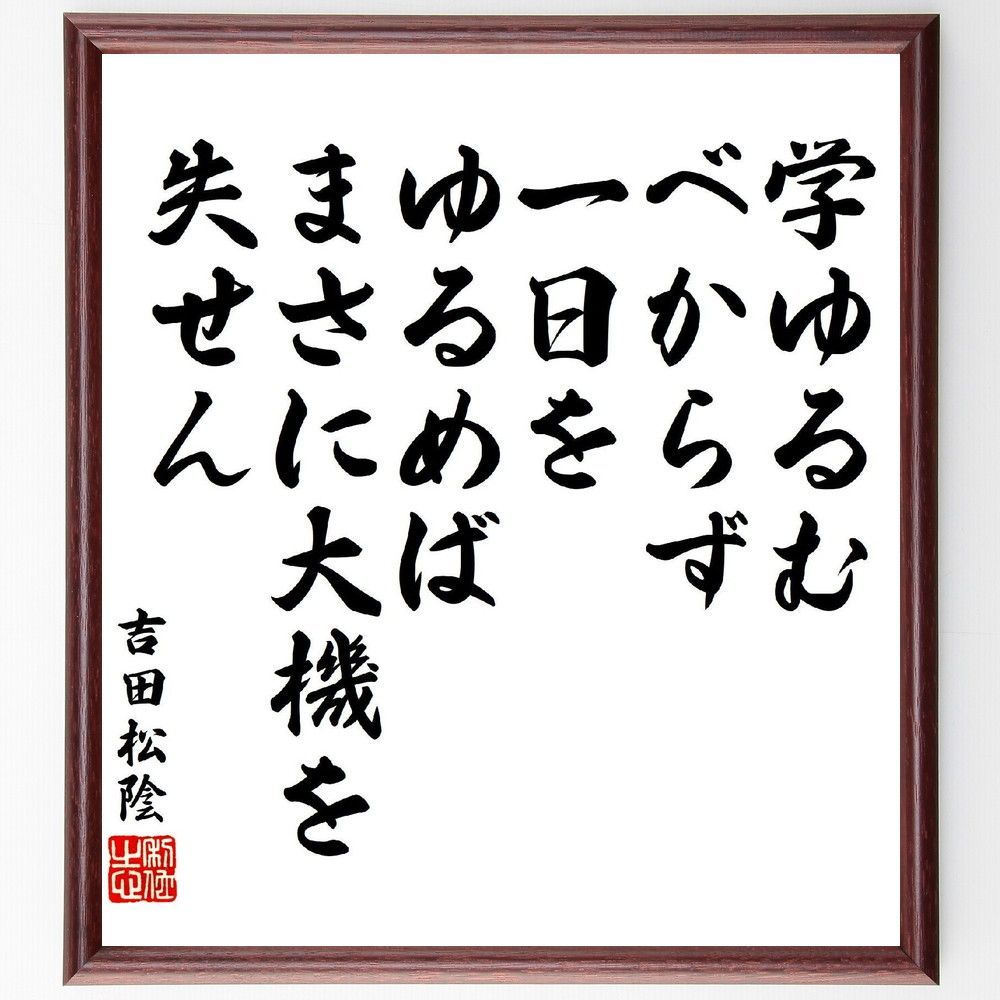 学ゆるむ
べからず
一日を
ゆるめば
まさに大機を
失せん
吉田松陰